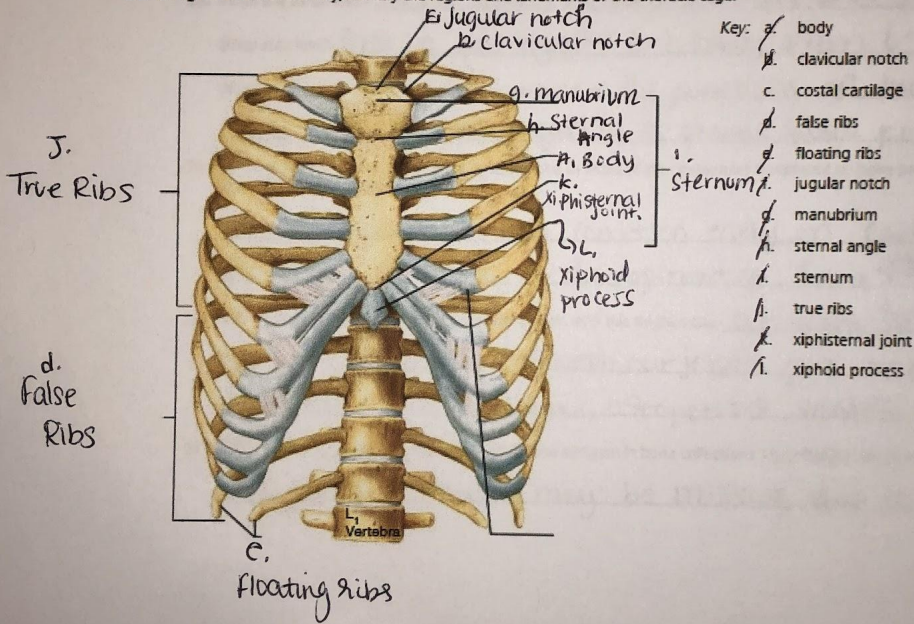 E. jugular notch
b. clavicular notch
g. manubrium
h. Sternal
Angle
A. Body
k.
Xiphisternal
joint.
i.
Sternum
L.
Xiphoid
process
J.
True Ribs
d.
False
Ribs
e.
Floating ribs
L1
Vertebra
Key: a. body
b. clavicular notch
c. costal cartilage
d. false ribs
e. floating ribs
f. jugular notch
g. manubrium
h. sternal angle
i. sternum
j. true ribs
k. xiphisternal joint
l. xiphoid process